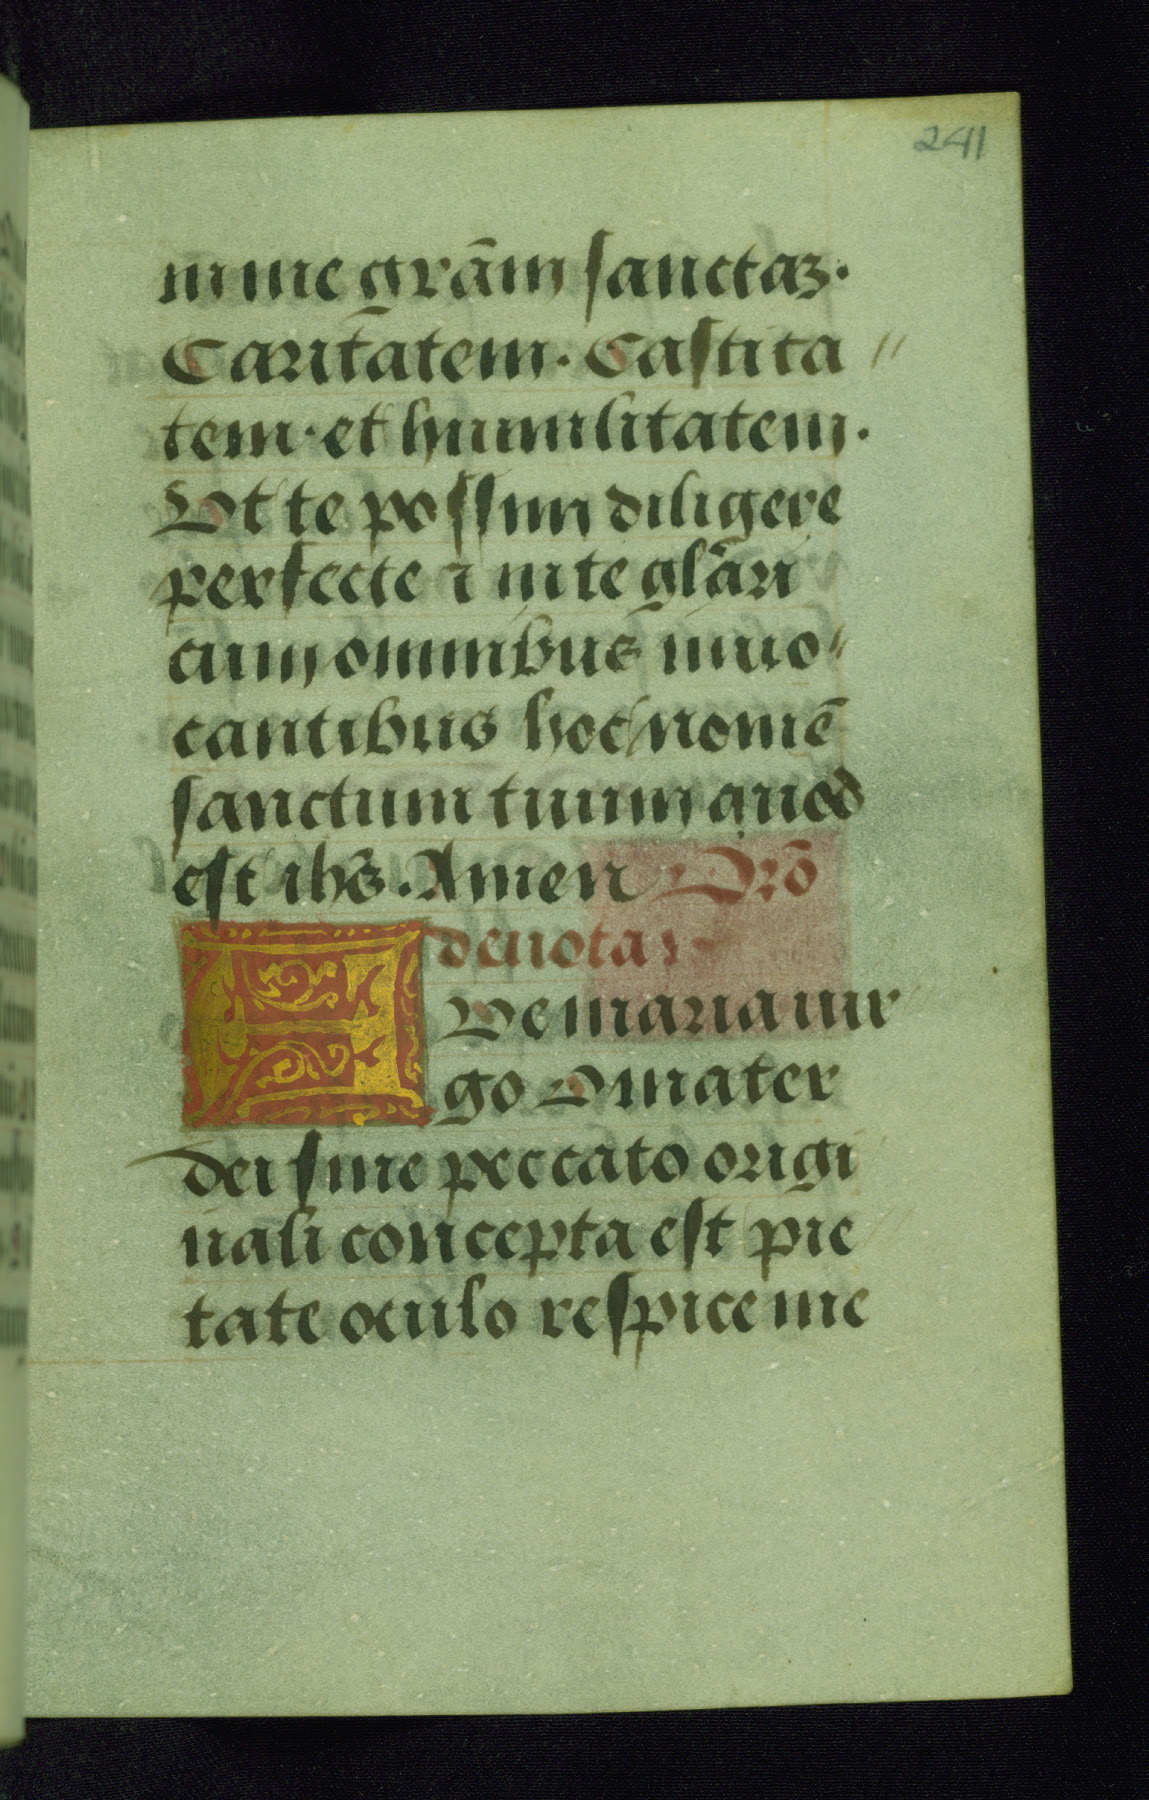 241
in me grãm sanctaz.
Caritatem. Castita
tem. et humilitatem.
Vt te possim diligere
perfecte ⁊ in te glãri
cum omnibus inuo
cantibus hoc nomẽ
sanctum tuum quod
est ihs̃. Amen Orõ
deuota
AVe maria uir
go O mater
dei sine peccato origi
nali concepta est pie
tate oculo respice me